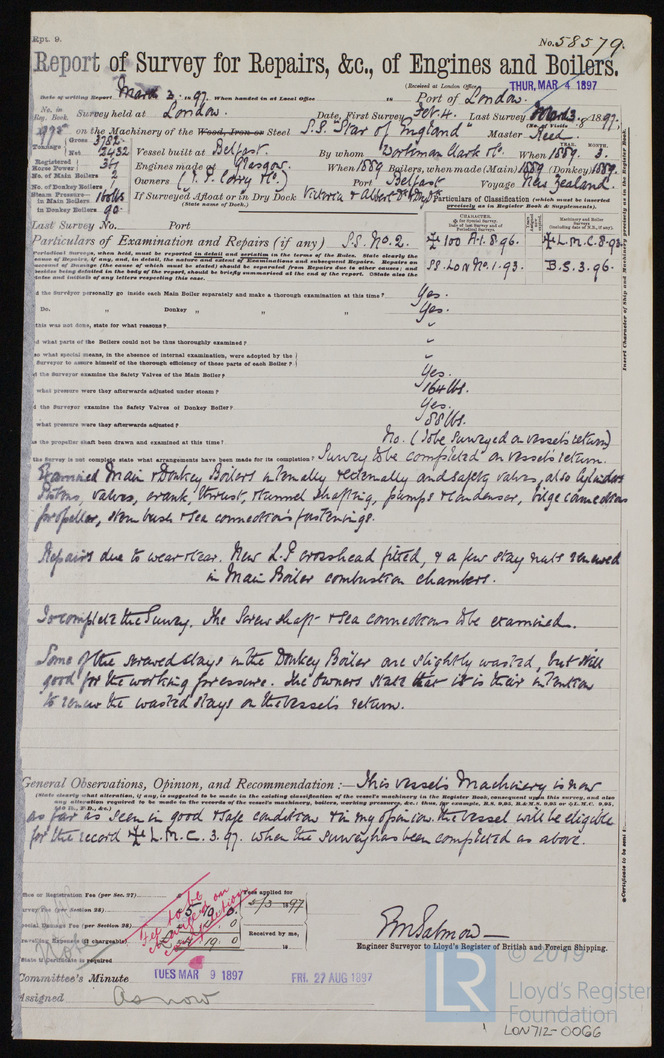 Rpt. 9.
No. 58579.
Report of Survey for Repairs, &c., of Engines and Boilers.
(Received at London Office
THUR, MAR 4 1897
Date of writing Report March 3. 1897. When handed in at Local Office in Port of London.
No. in Reg. Book. Survey held at London. Date, First Survey Feb. 4. Last Survey Mar 3. 1897.
(No. of Visits 8
on the Machinery of the Wood, Iron or Steel S.S. "Star of England" Master Reed
Tonnage Gross 3782
Net 2432
Vessel built at Belfast. By whom Workman Clark & Co. When 1889. 3.
YEAR. MONTH.
Registered Horse Power
Engines made at Glasgow. When 1889 Boilers, when made (Main) 1889 (Donkey) 1889.
No. of Main Boilers 2
No. of Donkey Boilers
Owners (J. P. Corry & Co.) Port Belfast Voyage New Zealand.
Steam Pressure in Main Boilers 160 lbs
in Donkey Boilers 90
If Surveyed Afloat or in Dry Dock Victoria & Albert
(State name of Dock.)
Particulars of Classification (which must be inserted precisely as in Register Book & Supplements).
Last Survey No. Port
CHARACTER.
Machinery and Boiler Surveys
Particulars of Examination and Repairs (if any) S.S. No. 2.
✠ 100 A.1. 8.96. ✠ L.M.C. 8.93
SS. Lon No. 1-93. B.S. 3.96.
Periodical Surveys, when held, must be reported in detail and seriatim in the terms of the Rules. State clearly the
nature and extent of Examinations and subsequent Repairs. Repairs on
account of damage (the cause of which must be stated) should be separated from Repairs due to other causes; and
besides being detailed in the body of the report, should be briefly summarised at the end of the report.
dates and initials of any letters respecting this case.
d the Surveyor personally go inside each Main Boiler separately and make a thorough examination at this time? Yes.
Do. Donkey " " " Yes.
this was not done, state for what reasons? "
d what parts of the Boilers could not be thus thoroughly examined? "
so what special means, in the absence of internal examination, were adopted by the
Surveyor to assure himself of the thorough efficiency of those parts of each Boiler? "
d the Surveyor examine the Safety Valves of the Main Boiler? Yes.
what pressure were they afterwards adjusted under steam? 164 lbs.
d the Surveyor examine the Safety Valves of Donkey Boiler? Yes.
what pressure were they afterwards adjusted? 88 lbs.
as the propeller shaft been drawn and examined at this time? No. (To be surveyed on vessel's return)
the Survey is not complete state what arrangements have been made for its completion? Survey to be completed on vessel's return.
Examined Main & Donkey Boilers internally & externally and safety valves, also Cylinders
Pistons, valves, crank, thrust, & tunnel shafting, pumps & condenser, bilge connections
propeller, stern bush & sea connections fastenings.
Repairs due to wear & tear. New L.P crosshead fitted, & a few stay nuts renewed
in Main Boiler combustion chambers.
To complete the Survey. The Screw shaft & sea connections to be examined.
Some of the screwed stays in the Donkey Boiler are slightly wasted, but still
good for the working pressure. The Owners state that it is their intention
to renew the wasted stays on the vessel's return.
General Observations, Opinion, and Recommendation:— This vessel's Machinery is now
(State clearly what alteration, if any, is suggested to be made in the existing classification of the vessel's machinery in the Register Book, consequent upon this survey, and also
any alteration required to be made in the records of the vessel's machinery, boilers, working pressure, &c.: thus, for example,
as far as seen in good & safe condition & in my opinion the vessel will be eligible
for the record ✠ L.M.C. 3.97. when the survey has been completed as above.
Office or Registration Fee (per Sec. 27)
Survey Fee (per Section 28) 5 . 19 . 0
Special Damage Fee (per Section 28)
Travelling Expenses (if chargeable)
Fees applied for
5/3 1897
Received by me,
18
State if Certificate is required
No
Fee to be charged on completion
Engineer Surveyor to Lloyd's Register of British and Foreign Shipping.
Committee's Minute TUES MAR 9 1897 FRI. 27 AUG 1897
Assigned As now
Insert Character of Ship and Machinery precisely as in the Register Book.
© 2019
LR
Lloyd's Register
Foundation
LON712-0066